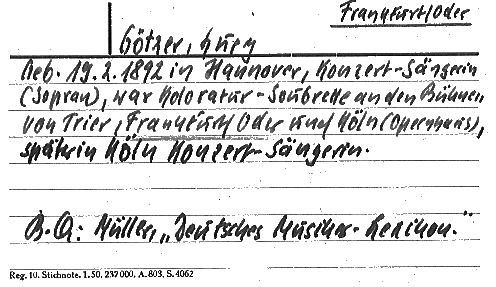 Frankfurt/Oder
Götzer, Lucy
Geb. 19.2.1892 in Hannover, Konzert-Sängerin
(Sopran), war Koloratur-Soubrette an den Bühnen
von Trier, Frankfurt/Oder und Köln (Opernhaus),
später in Köln Konzert-Sängerin.
B.Q: Müller, „Deutsches Musiker-Lexikon."
Reg. 10. Stichnote. 1.50. 237000. A. 803. S. 4062